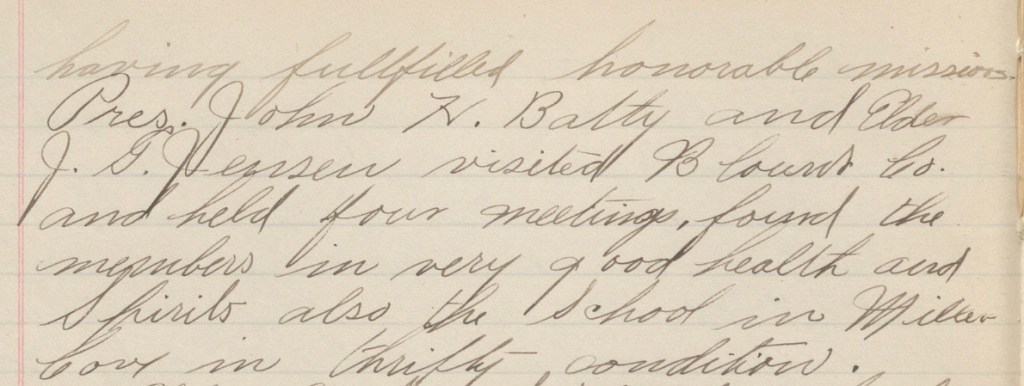 having fullfilled honorable missions.
Pres. John H. Batty and Elder
J. G. Jensen visited Blount Co.
and held four meetings, found the
members in very good health and
Spirits also the School in Miller
Cove in thrifty condition.